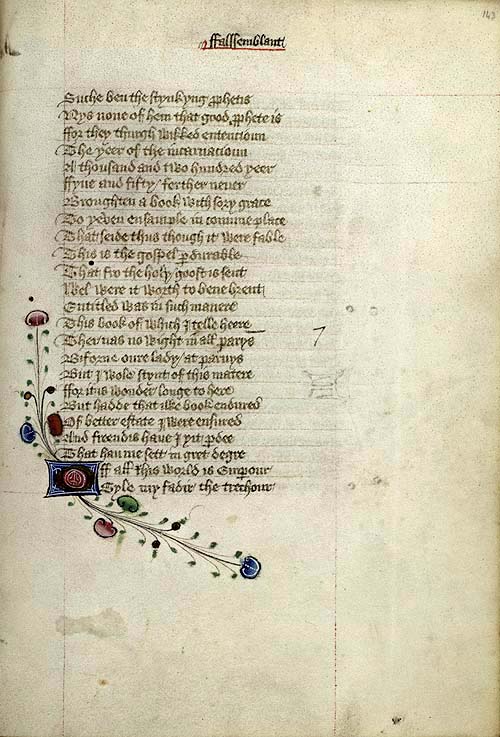 143
ffalssemblant
Suche ben the stynkyng ꝓphetis
Nys none of hem that good ꝓphete is
ffor they thurgh wikked entencioun
The yeer of the incarnacioun
A thousand and two hundred yeer
ffyve and fifty / ferther never
Broughten a book with sory grace
To yeven ensample in comune place
That seide thus though it were fable
This is the gospel ꝑdurable
That fro the holy goost is sent
Wel were it worth to bene brent
Entitled was in such manere
This book of which I telle heere
Ther nas no wight in all parys
Biforne oure lady / at parvys
But I wole stynt of this matere
ffor it is wonder longe to here
But hadde that ilke book endured
Of better estate I were ensured
And freendis have I yit ꝑdee
That han me sett in gret degre
Off all this world is Emperour
Gyle my fadir the trechour